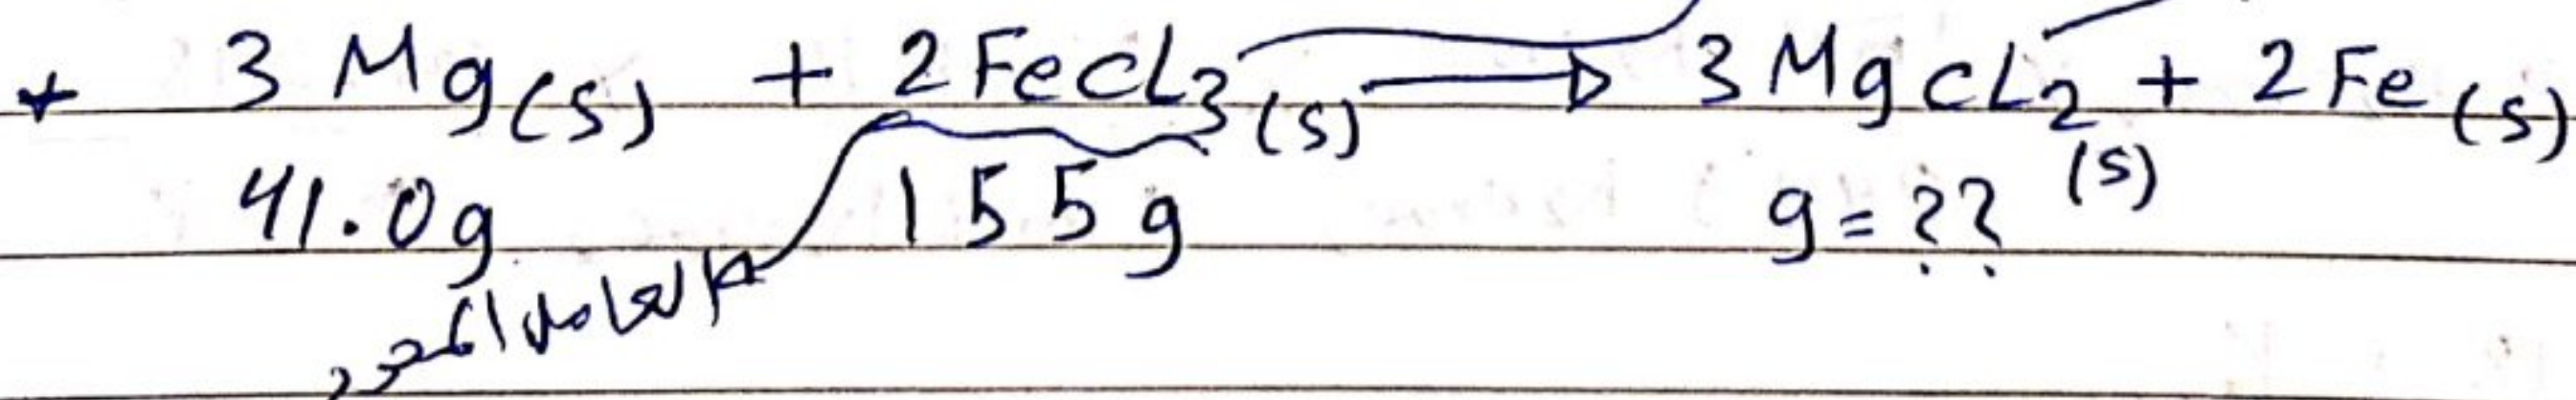 + 3 Mg(s) + 2FeCL3(s) → 3MgCL2(s) + 2Fe(s)
41.0g 155g g=??
العامل المحدد